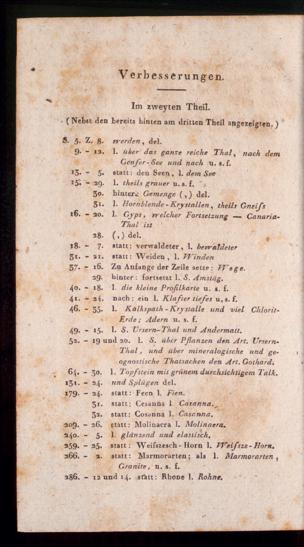 Verbesserungen.
Im zweyten Theil.
(Nebst den bereits hinten am dritten Theil angezeigten.)
S. 5. Z. 8. werden, del.
9. - 12. l. über das ganze reiche Thal, nach dem
Genfer-See und nach u. s. f.
13. - 5. statt: den Seen, l. dem See
15. - 29. l. theils grauer u. s. f.
30. hinter: Gemenge (,) del.
31. l. Hornblende-Krystallen, theils Gneiss
16. - 20. l. Gyps, welcher Fortsetzung — Canaria-
Thal ist
28. (,) del.
18. - 7. statt: verwaldeter, l. bewaldeter
31. - 21. statt: Weiden, l. Winden
37. - 16. Zu Anfange der Zeile setze: Wege.
29. hinter: fortsetzt l. S. Amstäg.
40. - 18. l. die kleine Profilkarte u. s. f.
41. - 24. nach: ein l. Klafter tiefes u. s. f.
46. - 35. l. Kalkspath-Krystalle und viel Chlorit-
Erde; Adern u. s. f.
49. - 15. l. S. Ursern-Thal und Andermatt.
52. - 19 und 20. l. S. über Pflanzen den Art. Ursern-
Thal, und über mineralogische und ge-
ognostische Thatsachen den Art. Gothard.
64. - 30. l. Topfstein mit grünem durchsichtigem Talk.
131. - 24. und Splügen del.
179. - 24. statt: Feen l. Fien.
31. statt: Cesanna l. Casanna.
32. statt: Cosanna l. Casanna.
209. - 26. statt: Molinacra l. Molinaera.
240. - 5. l. glänzend und elastisch,
259. - 25. statt: Weifszesch-Horn l. Weifsze-Horn.
266. - 2. statt: Marmorarten; als l. Marmorarten,
Granite, u. s. f.
286. - 12 und 14. statt: Rhone l. Rohne.